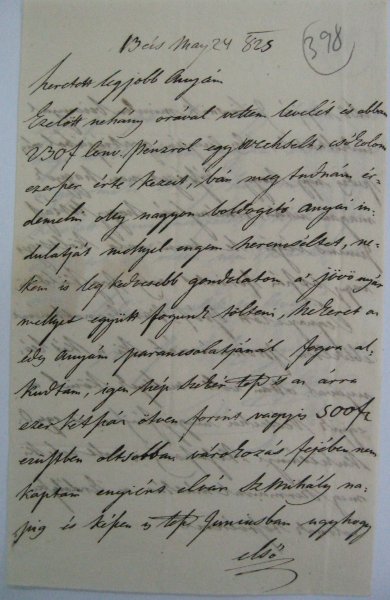 Bécs May 24 825
398
szeretett legjobb Anyám
Ezelött nehany orával vettem levelét és abban
230 f Conv. Pénzröl egy Wechselt, csokolom
ezerszer érte kezeit, bár meg tudnám ér-
demelni oly nagyon boldogitó anyai in-
dulatját mellyel engem szerencséltet, ne-
kem is leg kedvesebb gondolatom a' jövö nyár
mellyet együtt fogunk tölteni, Szekeret az
édes Anyám parancsolatjánál fogva al-
kudtam, igen szép szekér és az árra
ezer kétszáz ötven forint vagyis 500 f
ezüstben oltsobban várakozás fejében nem
kaptam ennyiért elvár Sz Mihály na-
pig és készen Juniusban ugyhogy
első